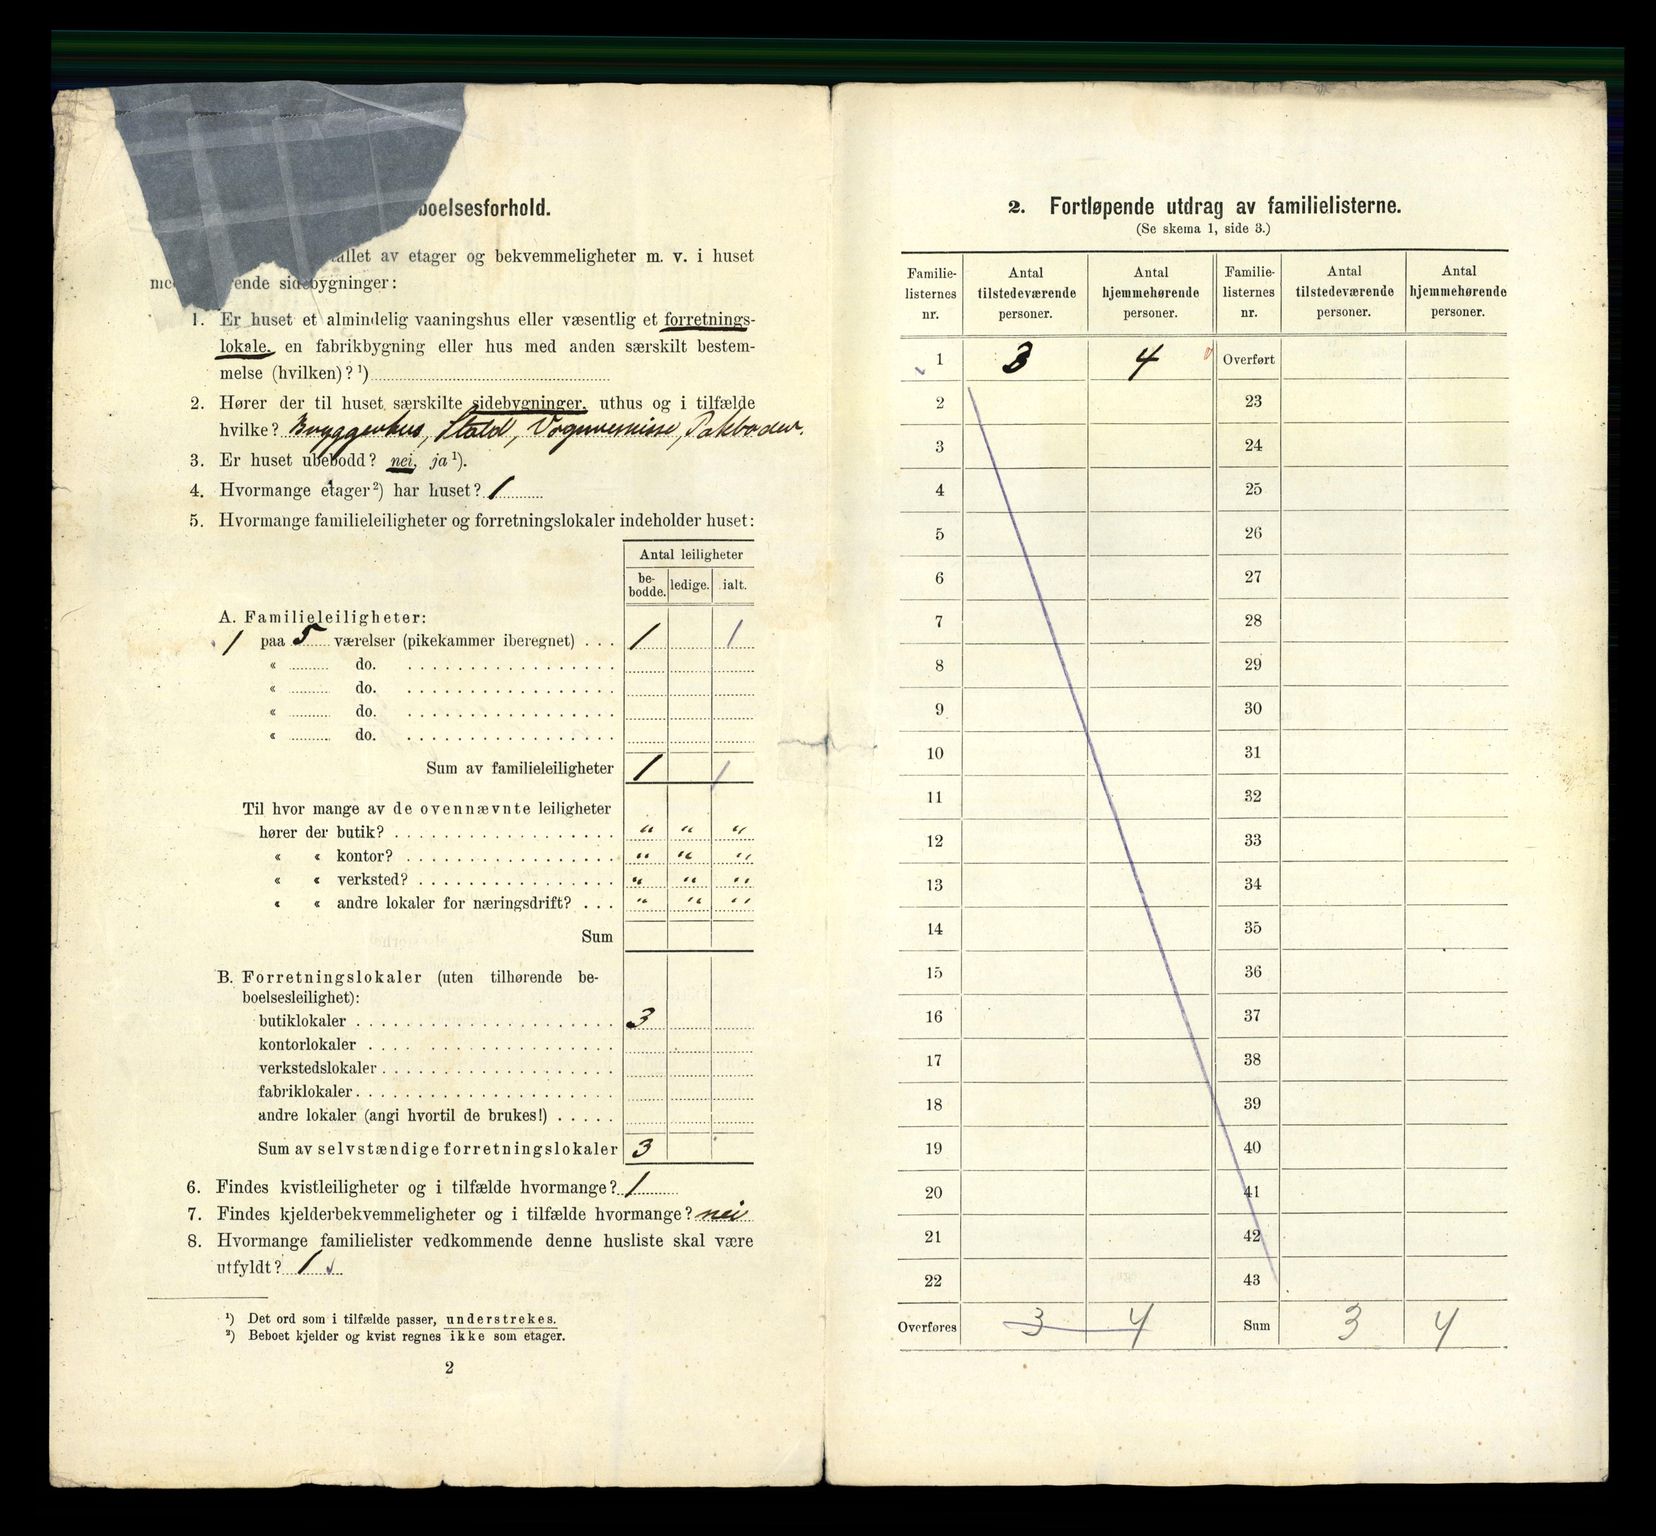 boelsesforhold.
tallet av etager og bekvemmeligheter m. v. i huset
rende sidebygninger:
1. Er huset et almindelig vaaningshus eller væsentlig et forretnings-
lokale, en fabrikbygning eller hus med anden særskilt bestem-
melse (hvilken)? ¹)
2. Hører der til huset særskilte sidebygninger, uthus og i tilfælde
hvilke? Bryggerhus, Stald, Pakboder.
3. Er huset ubebodd? nei, ja ¹).
4. Hvormange etager ²) har huset? 1
5. Hvormange familieleiligheter og forretningslokaler indeholder huset:
Antal leiligheter
be-bodde. ledige. ialt.
A. Familieleiligheter:
1 paa 5 værelser (pikekammer iberegnet) . . . 1 1
« do.
« do.
« do.
« do.
Sum av familieleiligheter 1 1
Til hvor mange av de ovennævnte leiligheter
hører der butik? " " "
« « kontor? " " "
« « verksted? " " "
« « andre lokaler for næringsdrift? . . . " " "
Sum
B. Forretningslokaler (uten tilhørende be-
boelsesleilighet):
butiklokaler 3
kontorlokaler
verkstedslokaler
fabriklokaler
andre lokaler (angi hvortil de brukes!)
Sum av selvstændige forretningslokaler 3
6. Findes kvistleiligheter og i tilfælde hvormange? 1
7. Findes kjelderbekvemmeligheter og i tilfælde hvormange? nei
8. Hvormange familielister vedkommende denne husliste skal være
utfyldt? 1
¹) Det ord som i tilfælde passer, understrekes.
²) Beboet kjelder og kvist regnes ikke som etager.
2
2. Fortløpende utdrag av familielisterne.
(Se skema 1, side 3.)
Familie-listernes nr. Antal tilstedeværende personer. Antal hjemmehørende personer. Familie-listernes nr. Antal tilstedeværende personer. Antal hjemmehørende personer.
1 3 4 Overført
2 23
3 24
4 25
5 26
6 27
7 28
8 29
9 30
10 31
11 32
12 33
13 34
14 35
15 36
16 37
17 38
18 39
19 40
20 41
21 42
22 43
Overføres 3 4 Sum 3 4